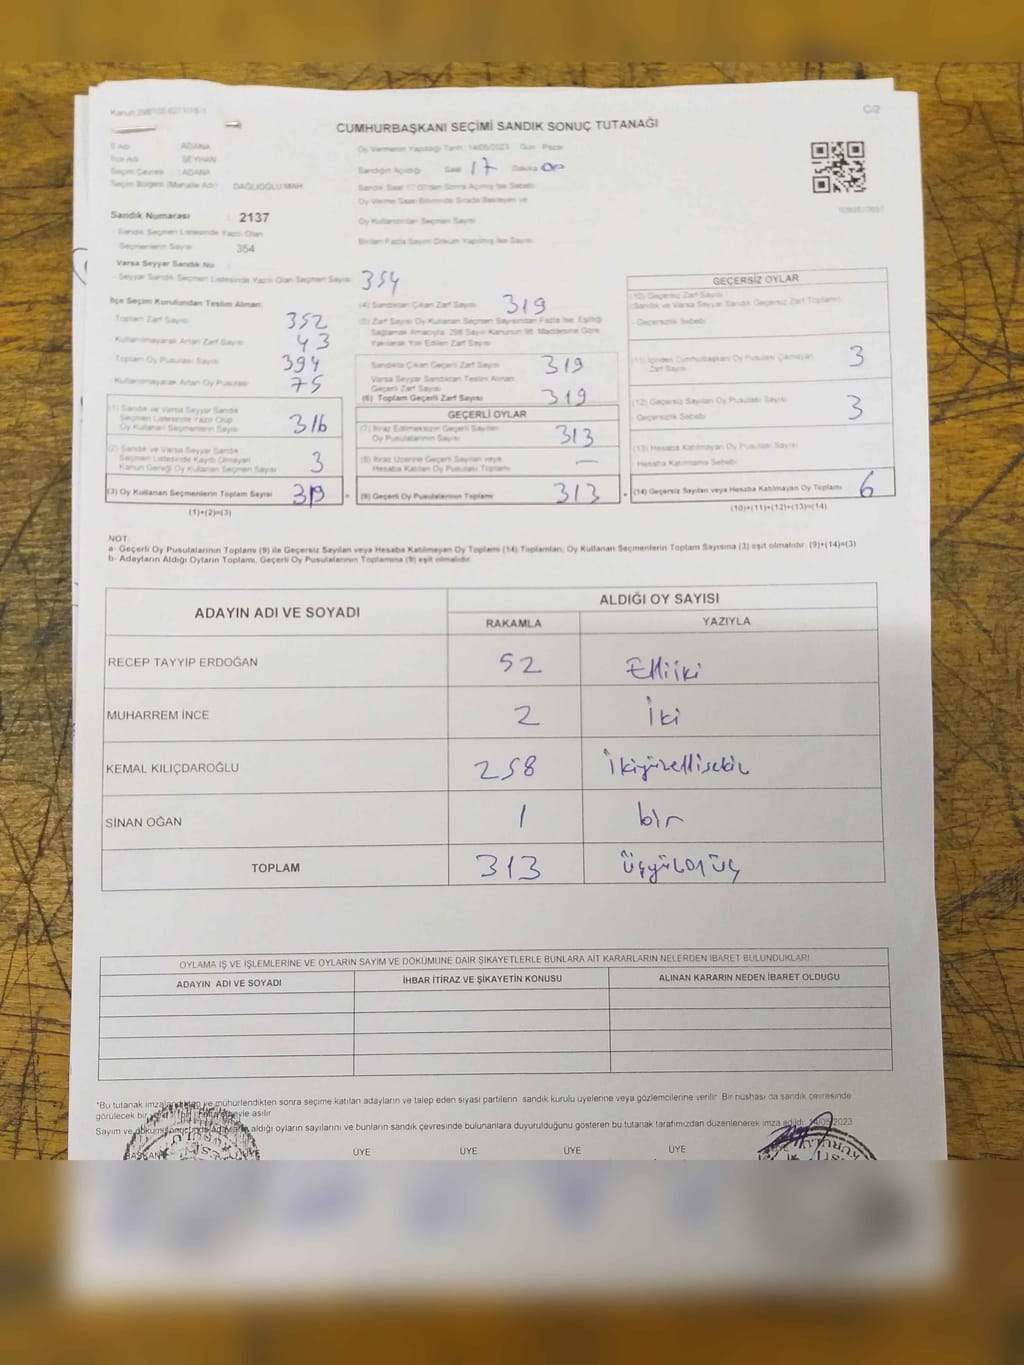 Kanun:298/105
C/2
CUMHURBAŞKANI SEÇİMİ SANDIK SONUÇ TUTANAĞI
İl Adı ADANA
İlçe Adı SEYHAN
Seçim Çevresi : ADANA
Seçim Bölgesi (Mahalle Adı) DAĞLIOĞLU MAH.
Oy Vermenin Yapıldığı Tarih: 14/05/2023 Gün: Pazar
Sandığın Açıldığı Saat 17 Dakika 00
Sandık Saat 17:00'den Sonra Açılmış İse Sebebi
Oy Verme Saati Bitiminde Sırada Bekleyen ve
Oy Kullandırılan Seçmen Sayısı
Birden Fazla Sayım Döküm Yapılmış İse Sayısı
Sandık Numarası : 2137
Sandık Seçmen Listesinde Yazılı Olan
Seçmenlerin Sayısı 354
Varsa Seyyar Sandık No
Seyyar Sandık Seçmen Listesinde Yazılı Olan Seçmen Sayısı 354
İlçe Seçim Kurulundan Teslim Alınan:
Toplam Zarf Sayısı 352
Kullanılmayarak Artan Zarf Sayısı 43
Toplam Oy Pusulası Sayısı 394
Kullanılmayarak Artan Oy Pusulası 75
(1) Sandık ve Varsa Seyyar Sandık
Seçmen Listesinde Yazılı Olup
Oy Kullanan Seçmenlerin Sayısı 316
(2) Sandık ve Varsa Seyyar Sandık
Seçmen Listesinde Kayıtlı Olmayan
Kanun Gereği Oy Kullanan Seçmen Sayısı 3
(3) Oy Kullanan Seçmenlerin Toplam Sayısı 319
(1)+(2)=(3)
(4) Sandıktan Çıkan Zarf Sayısı 319
(5) Zarf Sayısı Oy Kullanan Seçmen Sayısından Fazla İse, Eşitliği
Sağlamak Amacıyla, 298 Sayılı Kanunun 98. Maddesine Göre
Yakılarak Yok Edilen Zarf Sayısı
Sandıkta Çıkan Geçerli Zarf Sayısı 319
Varsa Seyyar Sandıktan Teslim Alınan
Geçerli Zarf Sayısı
(6) Toplam Geçerli Zarf Sayısı 319
GEÇERLİ OYLAR
(7) İtiraz Edilmeksizin Geçerli Sayılan
Oy Pusulalarının Sayısı 313
(8) İtiraz Üzerine Geçerli Sayılan veya
Hesaba Katılan Oy Pusulası Toplamı —
(9) Geçerli Oy Pusulalarının Toplamı 313
GEÇERSİZ OYLAR
(10) Geçersiz Zarf Sayısı
(Sandık ve Varsa Seyyar Sandık Geçersiz Zarf Toplamı)
Geçersizlik Sebebi
(11) İçinden Cumhurbaşkanı Oy Pusulası Çıkmayan
Zarf Sayısı 3
(12) Geçersiz Sayılan Oy Pusulası Sayısı
Geçersizlik Sebebi 3
(13) Hesaba Katılmayan Oy Pusulası Sayısı
Hesaba Katılmama Sebebi
(14) Geçersiz Sayılan veya Hesaba Katılmayan Oy Toplamı 6
(10)+(11)+(12)+(13)=(14)
NOT:
a- Geçerli Oy Pusulalarının Toplamı (9) ile Geçersiz Sayılan veya Hesaba Katılmayan Oy Toplamı (14) Toplamları, Oy Kullanan Seçmenlerin Toplam Sayısına (3) eşit olmalıdır. (9)+(14)=(3)
b- Adayların Aldığı Oyların Toplamı, Geçerli Oy Pusulalarının Toplamına (9) eşit olmalıdır.
ADAYIN ADI VE SOYADI
ALDIĞI OY SAYISI
RAKAMLA YAZIYLA
RECEP TAYYİP ERDOĞAN 52 Elliiki
MUHARREM İNCE 2 İki
KEMAL KILIÇDAROĞLU 258 İkiyüzellisekiz
SİNAN OĞAN 1 bir
TOPLAM 313 üçyüzonüç
OYLAMA İŞ VE İŞLEMLERİNE VE OYLARIN SAYIM VE DÖKÜMÜNE DAİR ŞİKAYETLERLE BUNLARA AİT KARARLARIN NELERDEN İBARET BULUNDUKLARI
ADAYIN ADI VE SOYADI İHBAR İTİRAZ VE ŞİKAYETİN KONUSU ALINAN KARARIN NEDEN İBARET OLDUĞU
*Bu tutanak imzalandıktan ve mühürlendikten sonra seçime katılan adayların ve talep eden siyasi partilerin sandık kurulu üyelerine veya gözlemcilerine verilir. Bir nüshası da sandık çevresinde
görülecek bir asılır
Sayım ve aldığı oyların sayılarını ve bunların sandık çevresinde bulunanlara duyurulduğunu gösteren bu tutanak tarafımızdan düzenlenerek imza edildi. 14/05/2023
BAŞKAN ÜYE ÜYE ÜYE ÜYE ÜYE